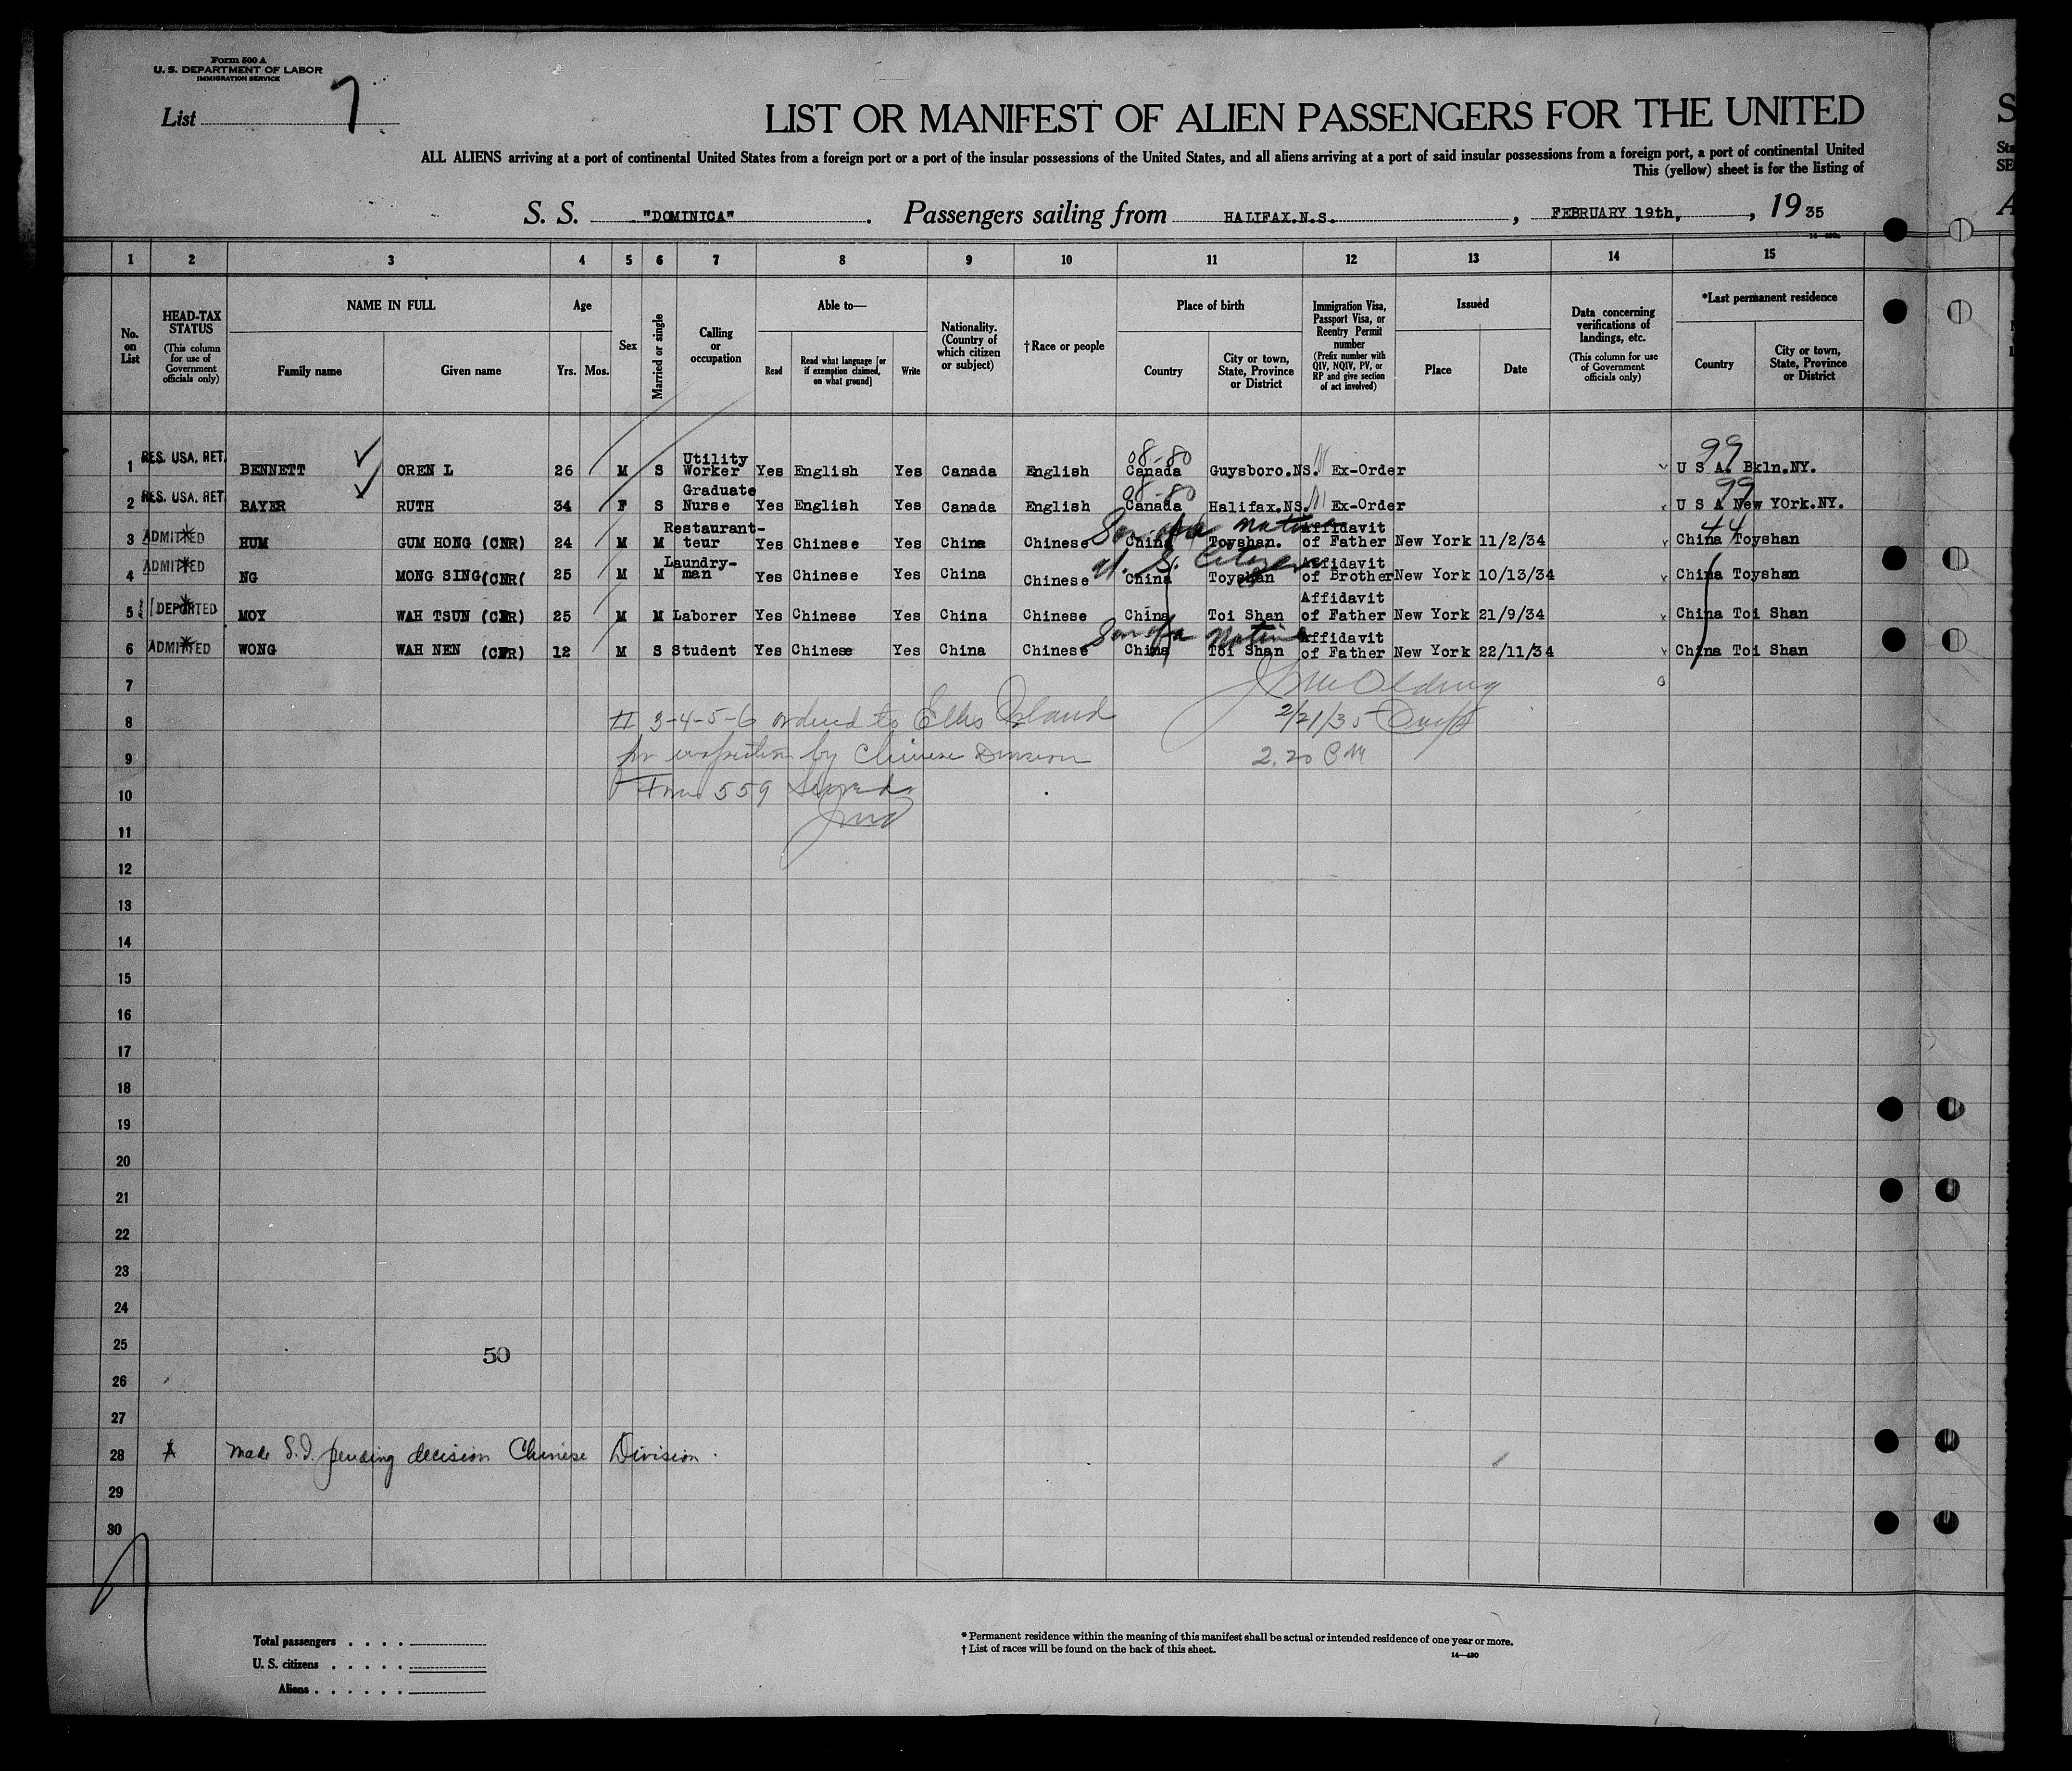 Form 500 A
U. S. DEPARTMENT OF LABOR
IMMIGRATION SERVICE
List 7
LIST OR MANIFEST OF ALIEN PASSENGERS FOR THE UNITED
S
ALL ALIENS arriving at a port of continental United States from a foreign port or a port of the insular possessions of the United States, and all aliens arriving at a port of said insular possessions from a foreign port, a port of continental United
Sta
This (yellow) sheet is for the listing of
SE
S. S. "DOMINICA". Passengers sailing from HALIFAX.N.S., FEBRUARY 19th, , 19 35
A
1 2 3 4 5 6 7 8 9 10 11 12 13 14 15
No. on List
HEAD-TAX STATUS (This column for use of Government officials only)
NAME IN FULL
Family name Given name
Age
Yrs. Mos.
Sex
Married or single
Calling or occupation
Able to—
Read
Read what language [or if exemption claimed, on what ground]
Write
Nationality. (Country of which citizen or subject)
†Race or people
Place of birth
Country
City or town, State, Province or District
Immigration Visa, Passport Visa, or Reentry Permit number (Prefix number with QIV, NQIV, PV, or RP and give section of act involved)
Issued
Place Date
Data concerning verifications of landings, etc. (This column for use of Government officials only)
*Last permanent residence
Country
City or town, State, Province or District
08-80 99
1 RES. USA. RET. BENNETT OREN L 26 M S Utility Worker Yes English Yes Canada English Canada Guysboro.NS. Ex-Order U S A. Bkln.NY.
08-80 99
2 RES. USA. RET. BAYER RUTH 34 F S Graduate Nurse Yes English Yes Canada English Canada Halifax.NS. Ex-Order U S A New YOrk.NY.
Son of a native 44
3 ADMITTED HUM GUM HONG (CNR) 24 M M Restaurant-teur Yes Chinese Yes China Chinese China Toyshan. Affidavit of Father New York 11/2/34 China Toyshan
U. S. Citizen
4 ADMITTED NG MONG SING(CNR( 25 M M Laundry-man Yes Chinese Yes China Chinese China Toyshan Affidavit of Brother New York 10/13/34 China Toyshan
5 DEPORTED MOY WAH TSUN (CNR) 25 M M Laborer Yes Chinese Yes China Chinese China Toi Shan Affidavit of Father New York 21/9/34 China Toi Shan
Son of a Native
6 ADMITTED WONG WAH NEN (CNR) 12 M S Student Yes Chinese Yes China Chinese China Toi Shan Affidavit of Father New York 22/11/34 China Toi Shan
7
8 3-4-5-6 ordered to Ellis Island 2/21/35
9 for inspection by Chinese Division 2.20 PM
10 Form 559 served
11
12
13
14
15
16
17
18
19
20
21
22
23
24
25
50
26
27
28 * Made S.I. pending decision Chinese Division.
29
30
Total passengers . . . .
U. S. citizens . . . . .
Aliens . . . . . .
* Permanent residence within the meaning of this manifest shall be actual or intended residence of one year or more.
† List of races will be found on the back of this sheet.
14—430